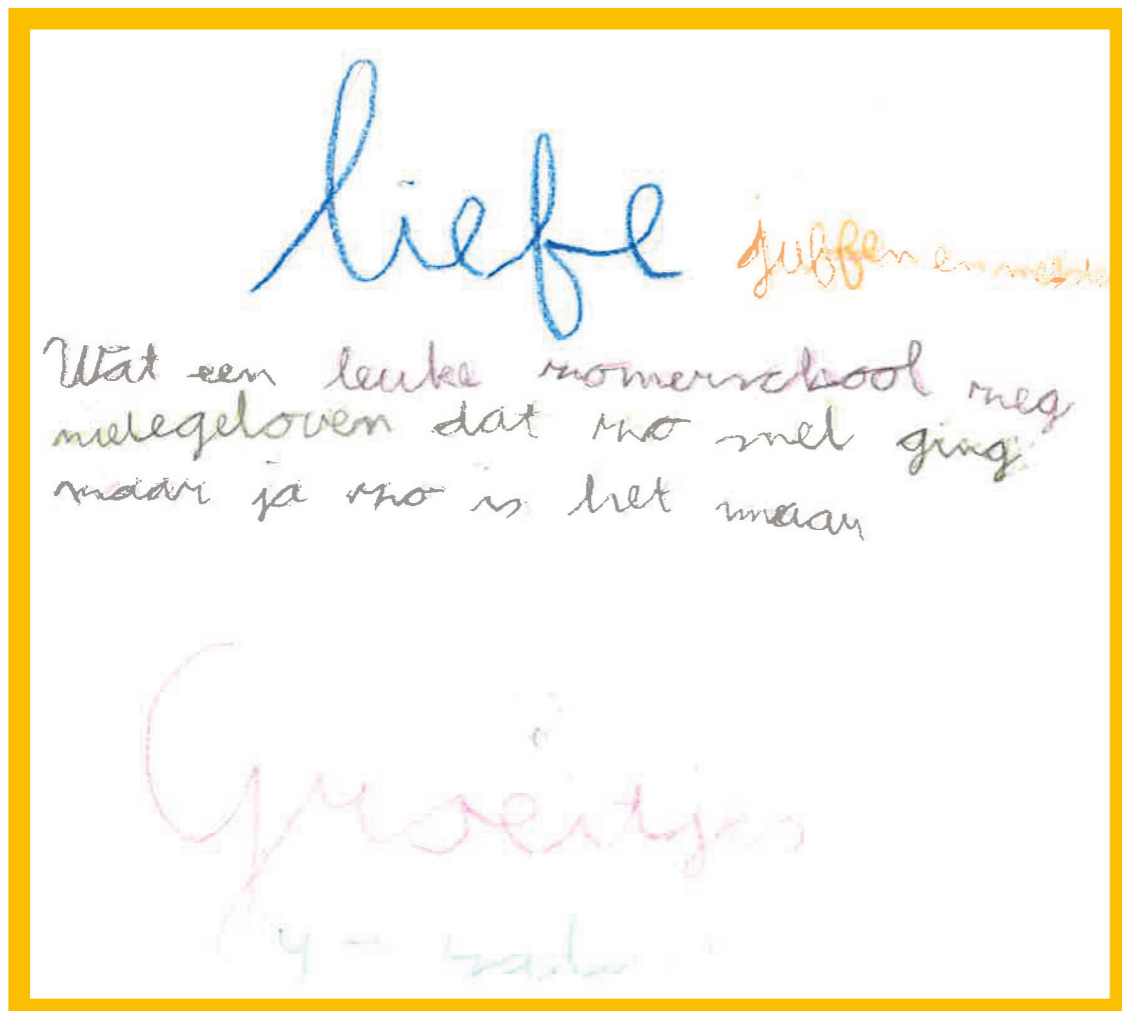 liefe juffen en meester
Wat een leuke zomerschool zeg
nietegeloven dat zo snel ging
maar ja zo is het maar
Groeitjes